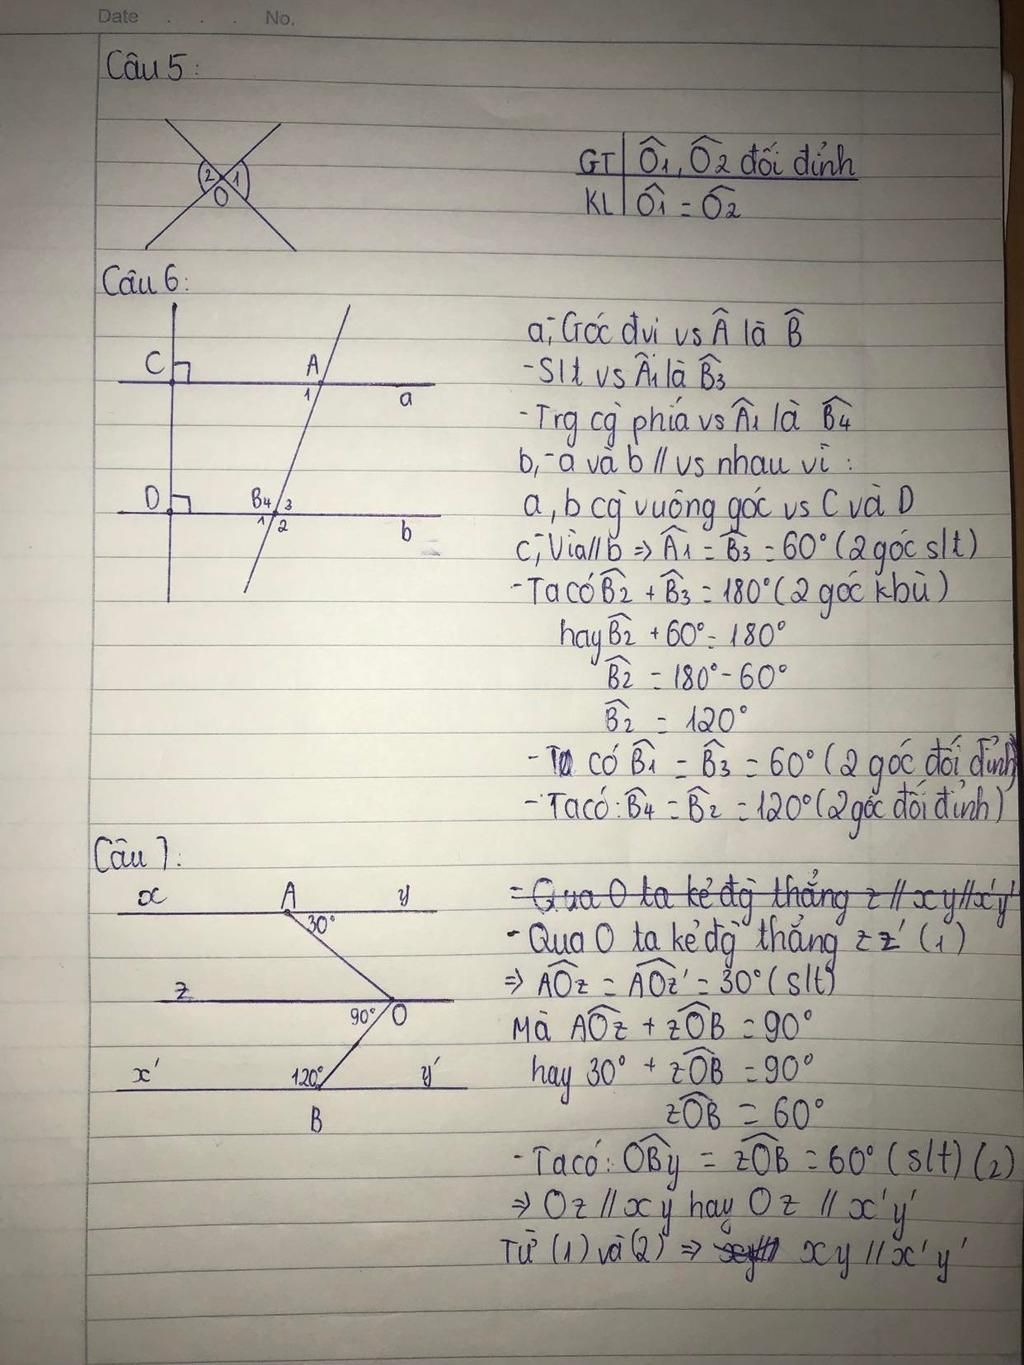 Date . . . No.
Câu 5:
2 1
O
GT Ô1, Ô2 đối đỉnh
KL Ô1 = Ô2
Câu 6:
C A
1 a
D B4 3
1 2 b
a, Góc đvi vs Â là B̂
- Slt vs Â1 là B̂3
- Trg cg̀ phiá vs Â1 là B̂4
b, - a và b // vs nhau vì :
a, b cg̀ vuông góc vs C và D
c, Vì a // b => Â1 = B̂3 = 60° (2 góc slt)
- Ta có B̂2 + B̂3 = 180° (2 góc khù)
hay B̂2 + 60° = 180°
B̂2 = 180° - 60°
B̂2 = 120°
- Ta có B̂1 = B̂3 = 60° (2 góc đối đỉnh)
- Ta có: B̂4 = B̂2 = 120° (2 góc đối đỉnh)
Câu 7:
x A y
30°
z
90° O
x' 120° y'
B
- Qua O ta kẻ đg̀ thẳng z // xy // x'y'
- Qua O ta kẻ đg̀ thẳng zz' (1)
=> AÔz = AÔz' = 30° (slt)
Mà AÔz + zÔB = 90°
hay 30° + zÔB = 90°
zÔB = 60°
- Ta có: OB̂y = zÔB = 60° (slt) (2)
=> Oz // xy hay Oz // x'y'
Từ (1) và (2) => xy // x'y'